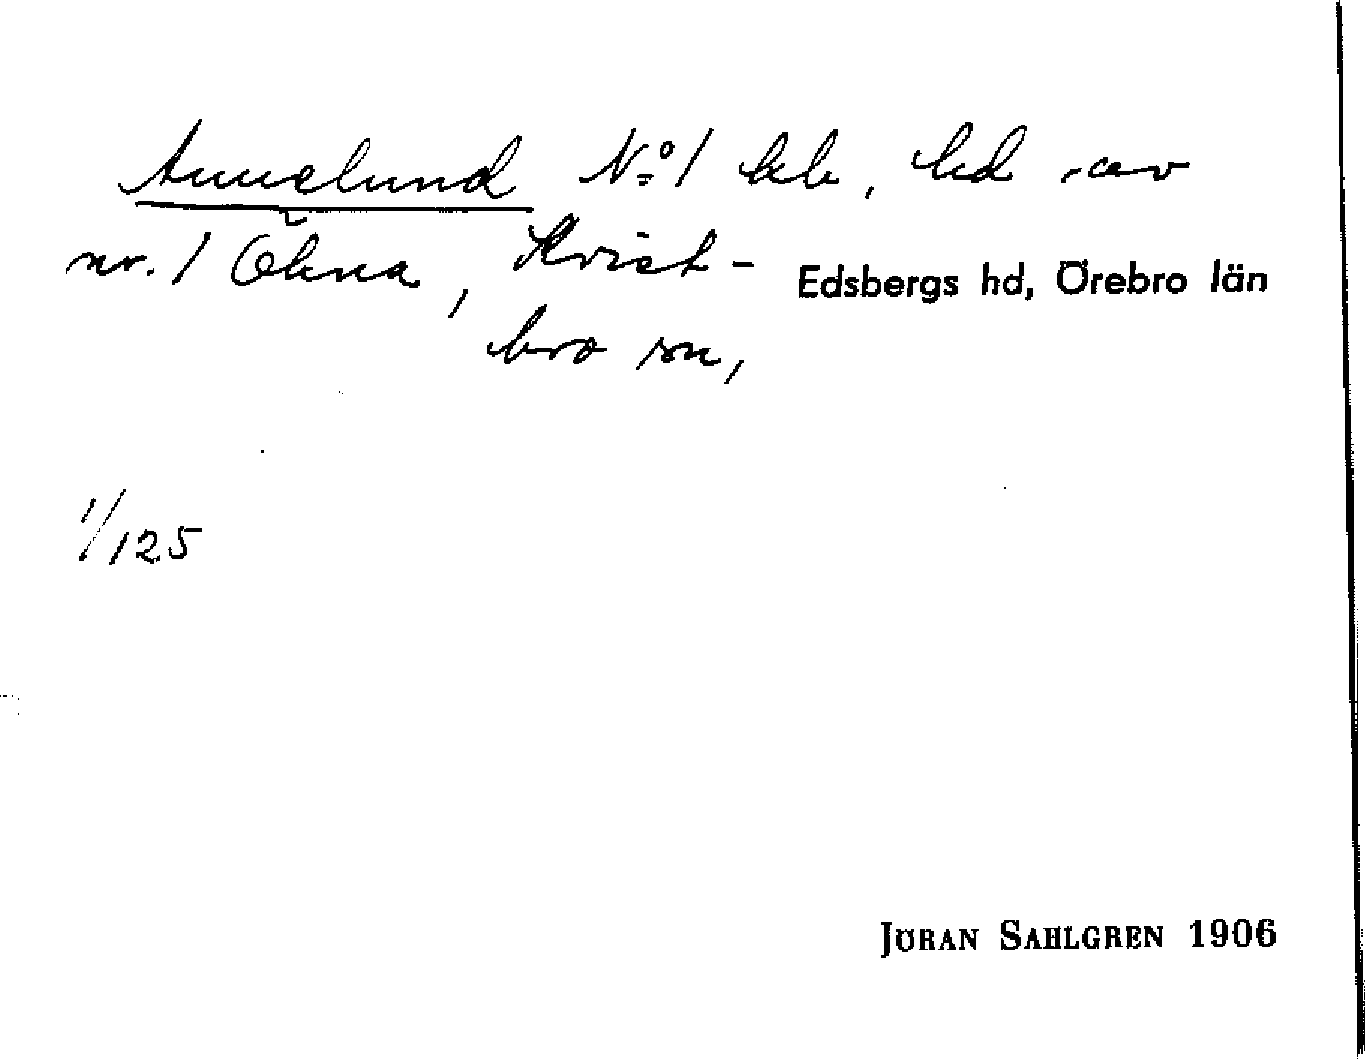 Annelund No 1 beb, av
nr. 1 Ökna, Kvist- Edsbergs hd, Örebro län
bro sn,
1/125
JÖRAN SAHLGREN 1906